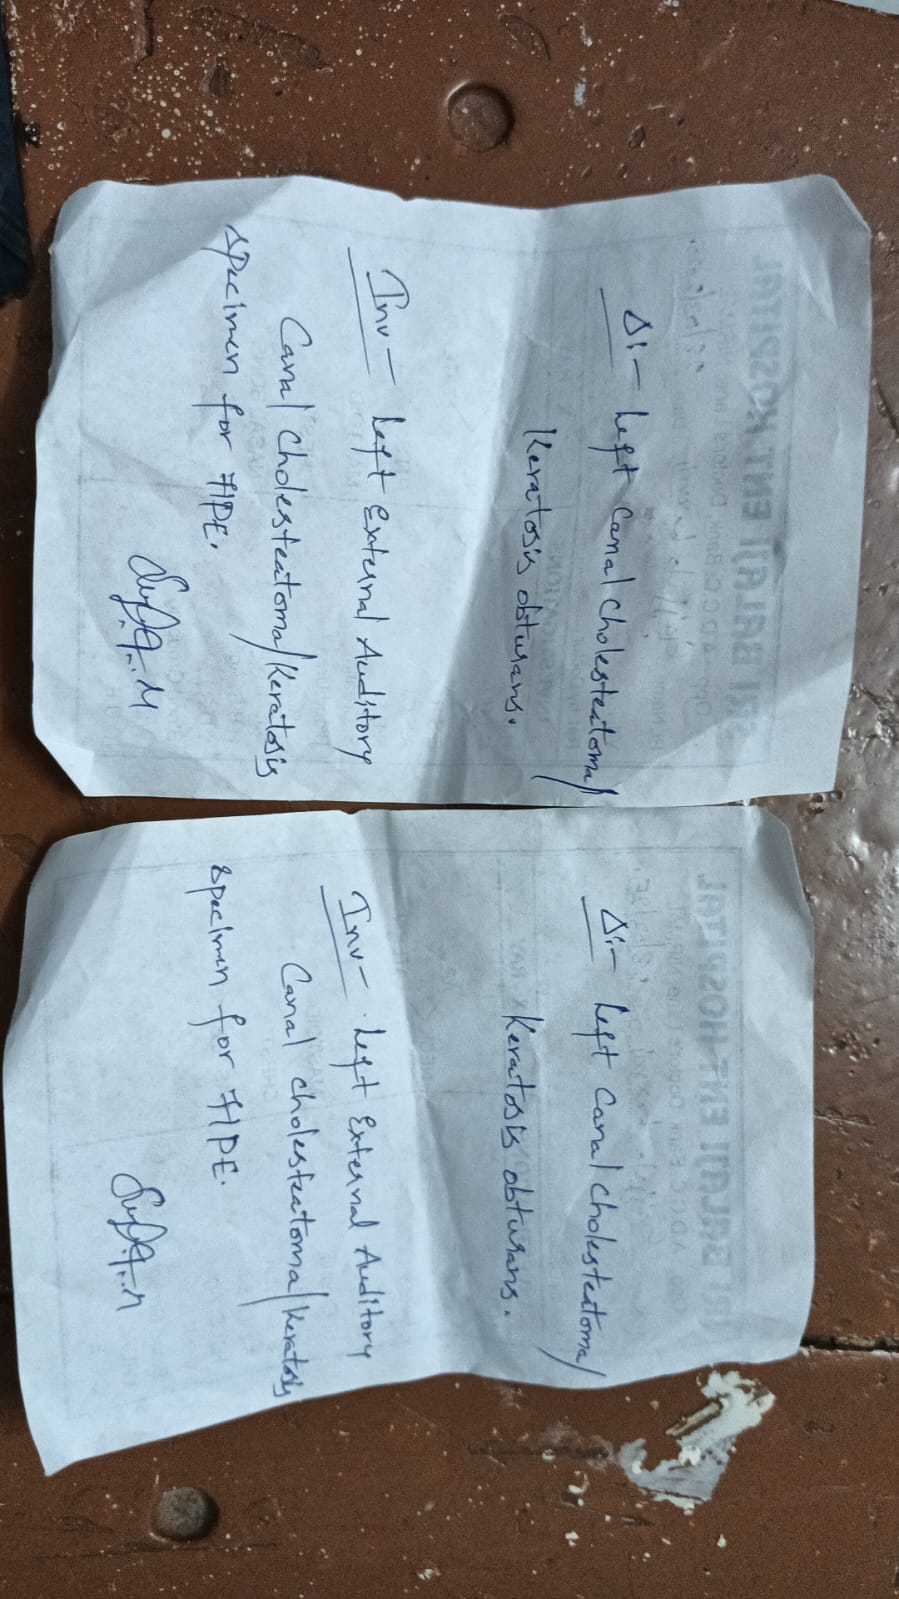 Δ:- Left Canal Cholesteatoma/
Keratosis obturans.
Inv- Left External Auditory
Canal Cholesteatoma/Keratosis
specimen for HPE.
Δ:- Left Canal Cholesteatoma/
Keratosis obturans.
Inv- Left External Auditory
Canal Cholesteatoma/Keratosis
specimen for HPE.